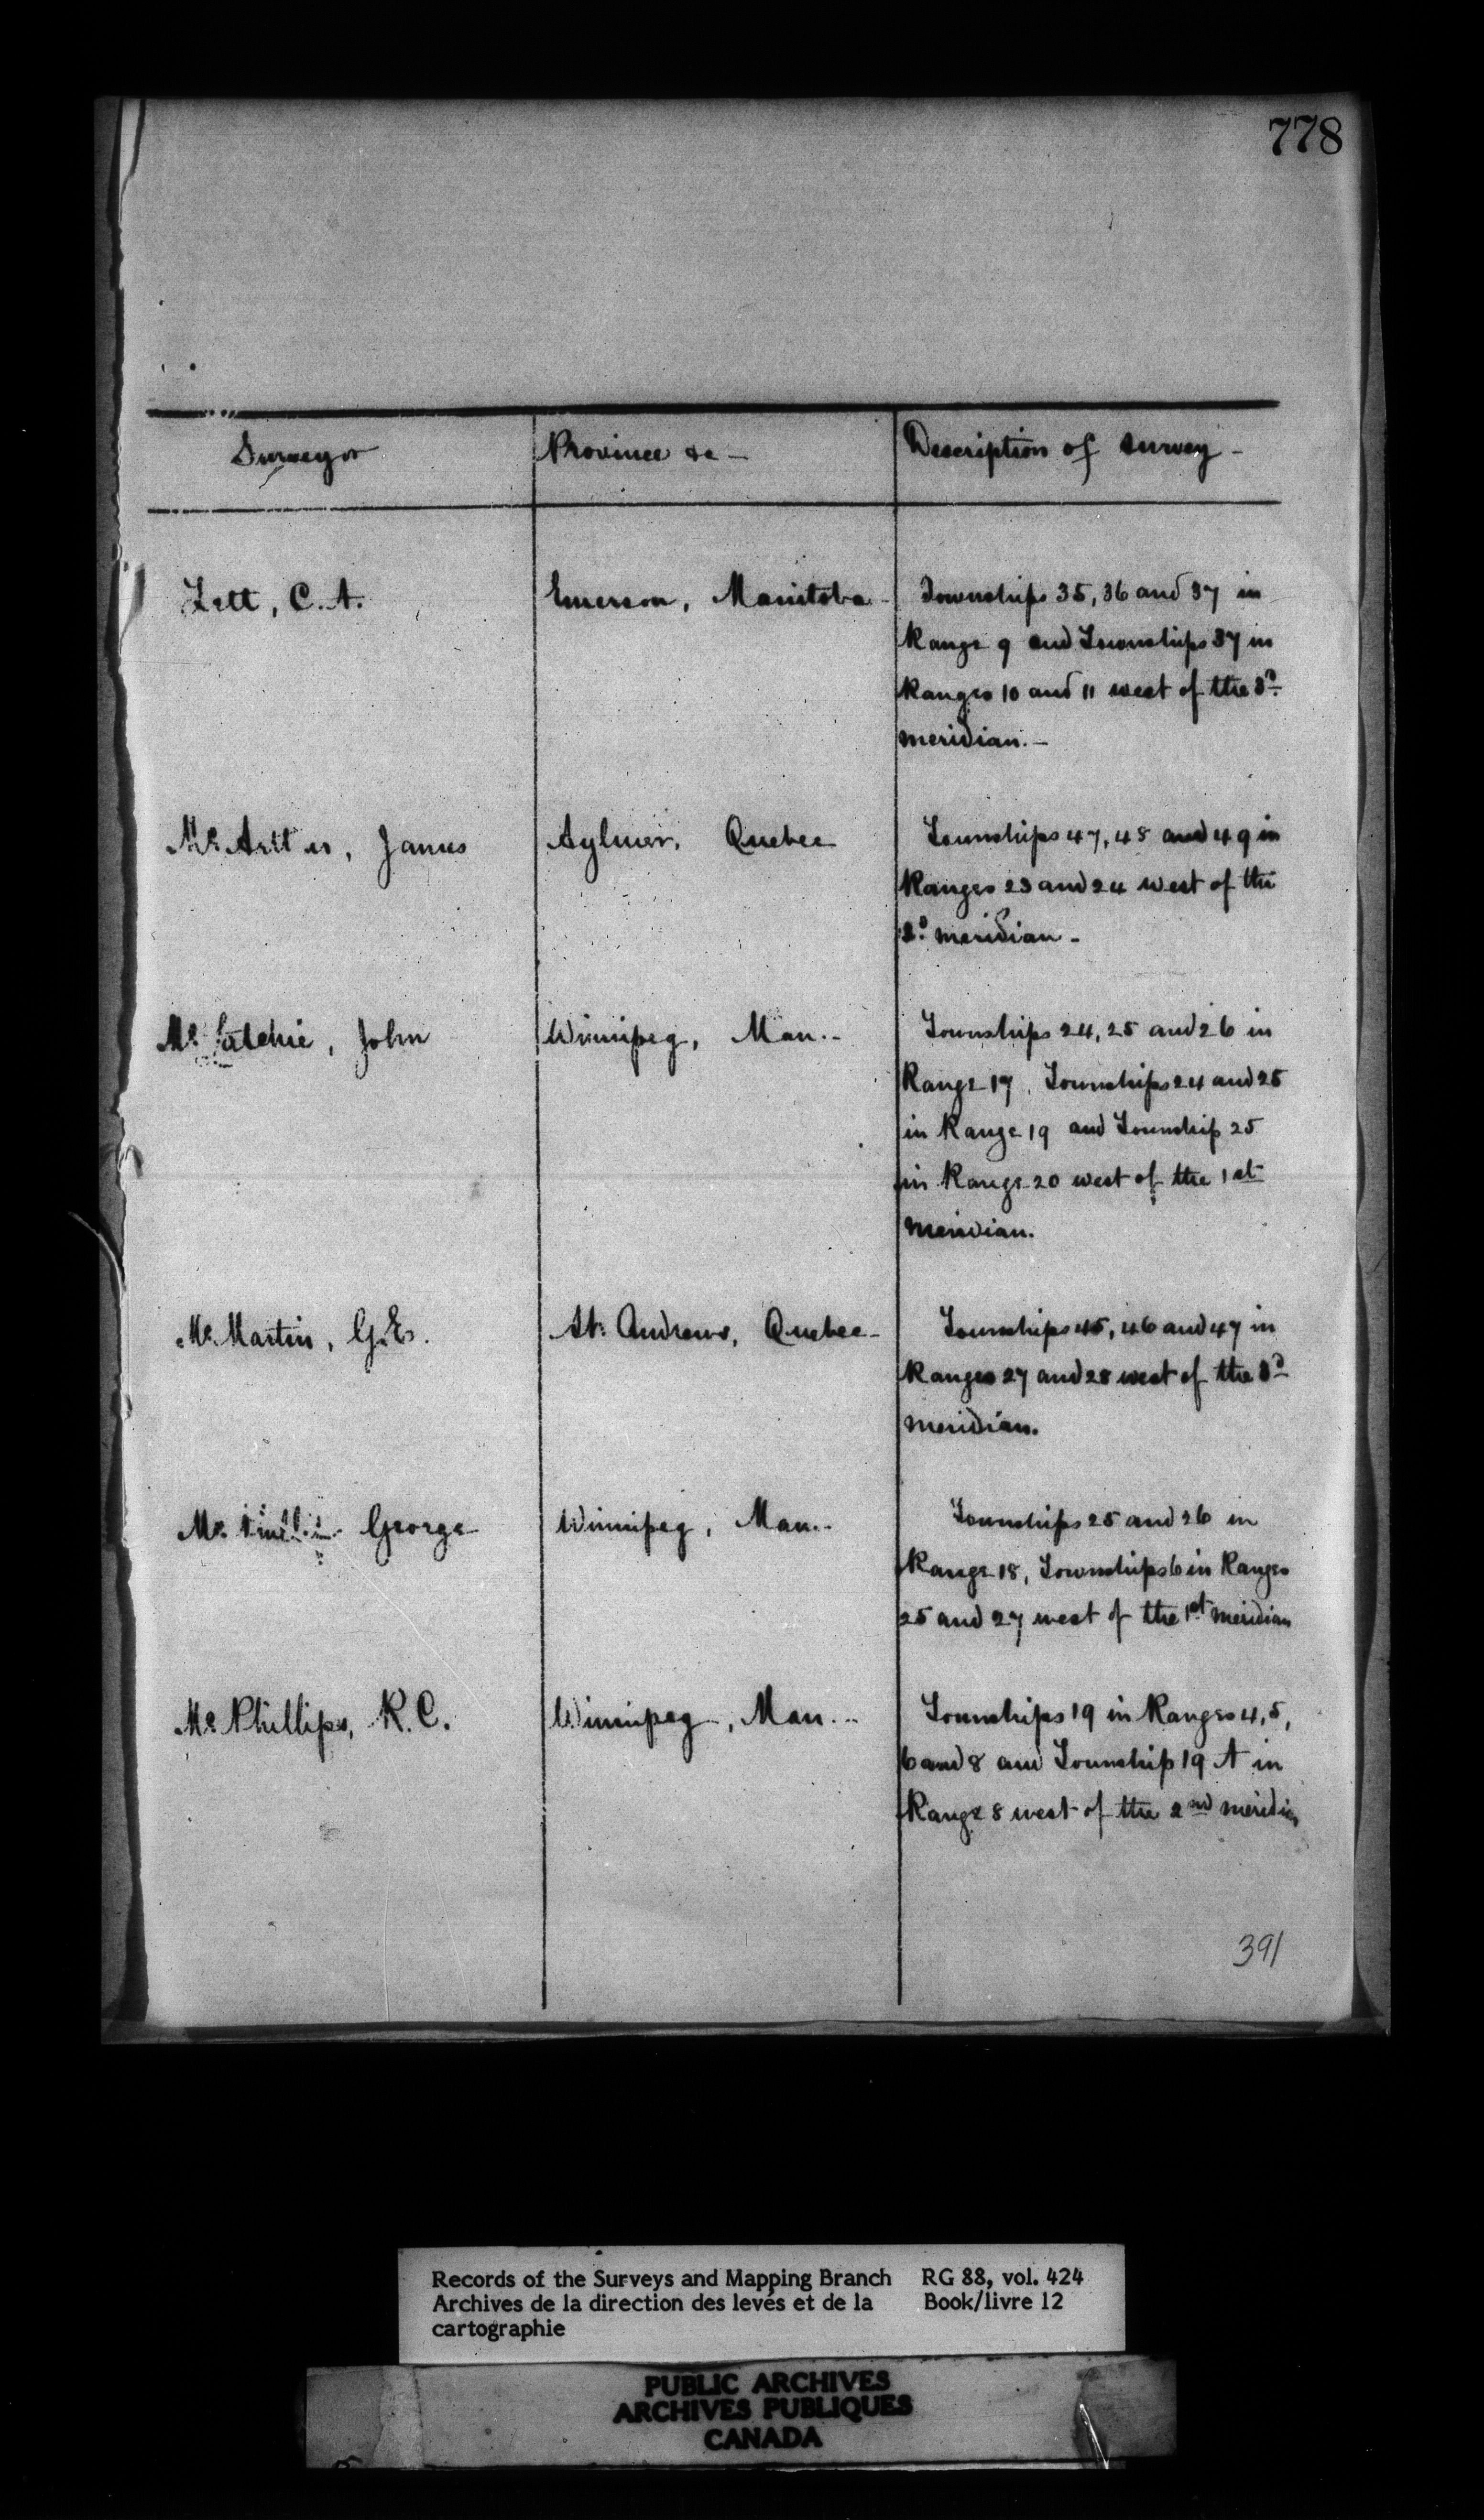 778
Surveyor Province &c - Description of Survey -
Lett, C. A. Emerson, Manitoba Townships 35, 36 and 37 in
Range 9 and Townships 37 in
Ranges 10 and 11 west of the 3d
meridian. -
McArthur, James Aylmer, Quebec Townships 47, 48 and 49 in
Ranges 23 and 24 west of the
2d meridian -
McLatchie, John Winnipeg, Man. - Townships 24, 25 and 26 in
Range 17, Townships 24 and 25
in Range 19 and Township 25
in Range 20 west of the 1st
Meridian.
McMartin, G.E. St. Andrews, Quebec - Townships 45, 46 and 47 in
Ranges 27 and 28 west of the 3d
meridian.
Mc George Winnipeg, Man. - Townships 25 and 26 in
Range 18, Townships 6 in Ranges
25 and 27 west of the 1st meridian
McPhillips, R. C. Winnipeg, Man. - Townships 19 in Ranges 4, 5,
6 and 8 and Township 19 A in
Range 8 west of the 2nd meridian
391
Records of the Surveys and Mapping Branch RG 88, vol. 424
Archives de la direction des levés et de la Book/livre 12
cartographie
PUBLIC ARCHIVES
ARCHIVES PUBLIQUES
CANADA